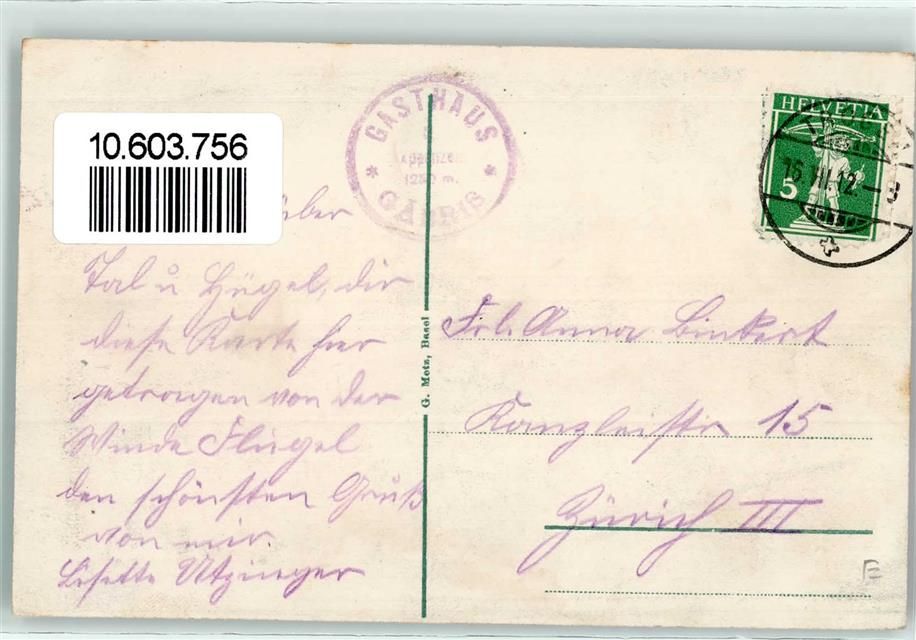 10.603.756
GASTHAUS
Appenzell
1250 m.
GÄBRIS
HELVETIA
5
16.VII.12.
über
Tal u Hügel, dir
diese Karte hier
getragen von der
Winde Flügel
den schönsten Gruß
von mir.
Lisette Utzinger
G. Metz, Basel
Frl. Anna Binkert
Kanzleistr 15
Zürich III
E